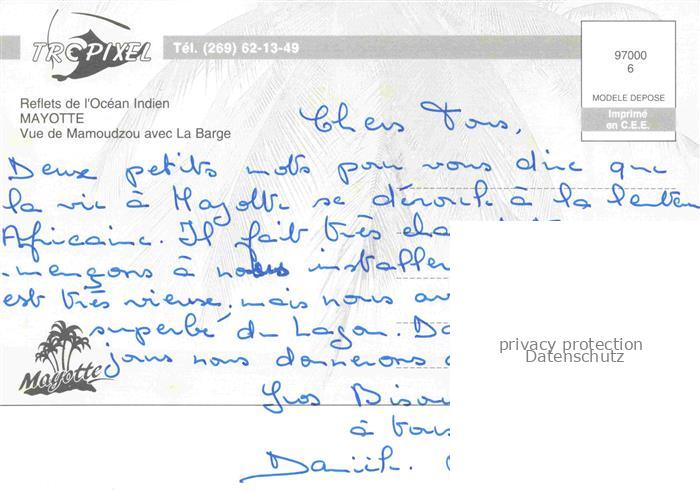 TROPIXEL
Tél. (269) 62-13-49
97000
6
MODELE DEPOSE
Imprimé
en C.E.E.
Reflets de l'Océan Indien
MAYOTTE
Vue de Mamoudzou avec La Barge
Chers Tous,
Deux petits mots pour vous dire que
la vie à Mayotte se déroule à la
Africaine. Il fait très
-mençons à nous installer
est très vieuse, mais nous
superbe du Lagon.
jours nous donnerons
Gros
à tous
privacy protection
Datenschutz
Mayotte